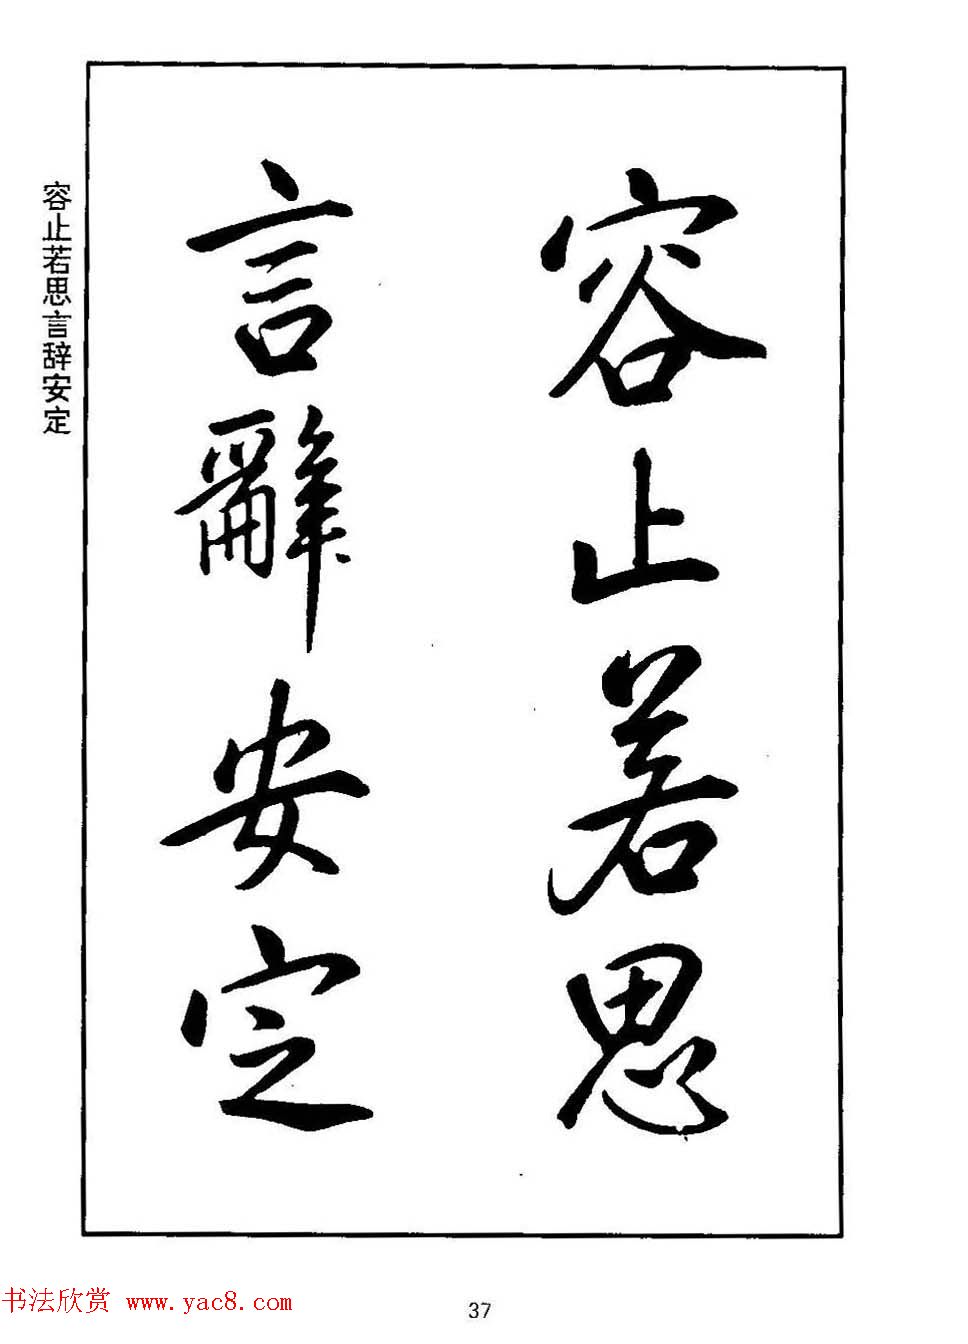 容止若思
言辭安定
容止若思言辞安定
书法欣赏 www.yac8.com
37